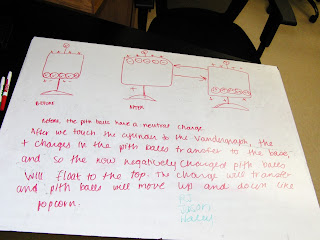 BEFORE
AFTER
Before, the pith balls have a neutral charge.
After we touch the cylinder to the Vandergraph, the
+ charges in the pith balls transfer to the base,
and so the now negatively charged pith balls
will float to the top. The charge will transfer
and pith balls will move up and down like
popcorn.